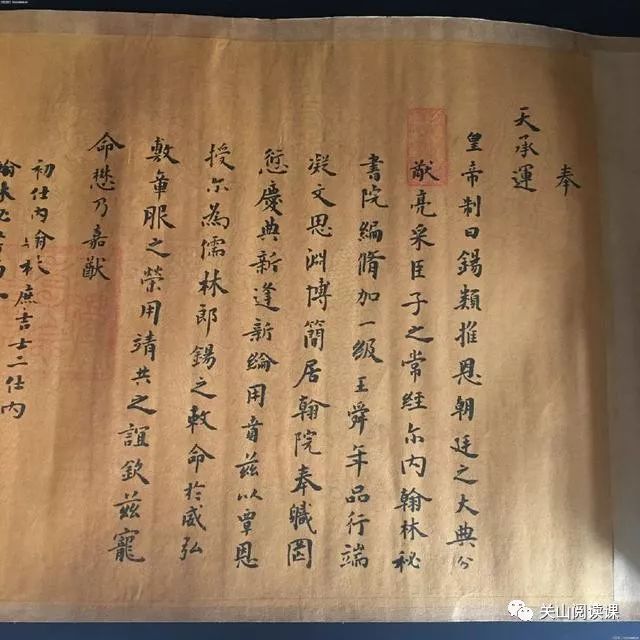 奉
天承運
皇帝制曰錫類推恩朝廷之大典分
猷亮采臣子之常經尔内翰林秘
書院編脩加一級王舜年品行端
凝文思淵博簡居翰院奉職罔
愆慶典新逢新綸用賁茲以覃恩
授尔為儒林郎錫之敕命於威弘
敷章服之榮用靖共之誼欽茲寵
命懋乃嘉猷
初仕内翰林庶吉士二仕内
关山阅读课